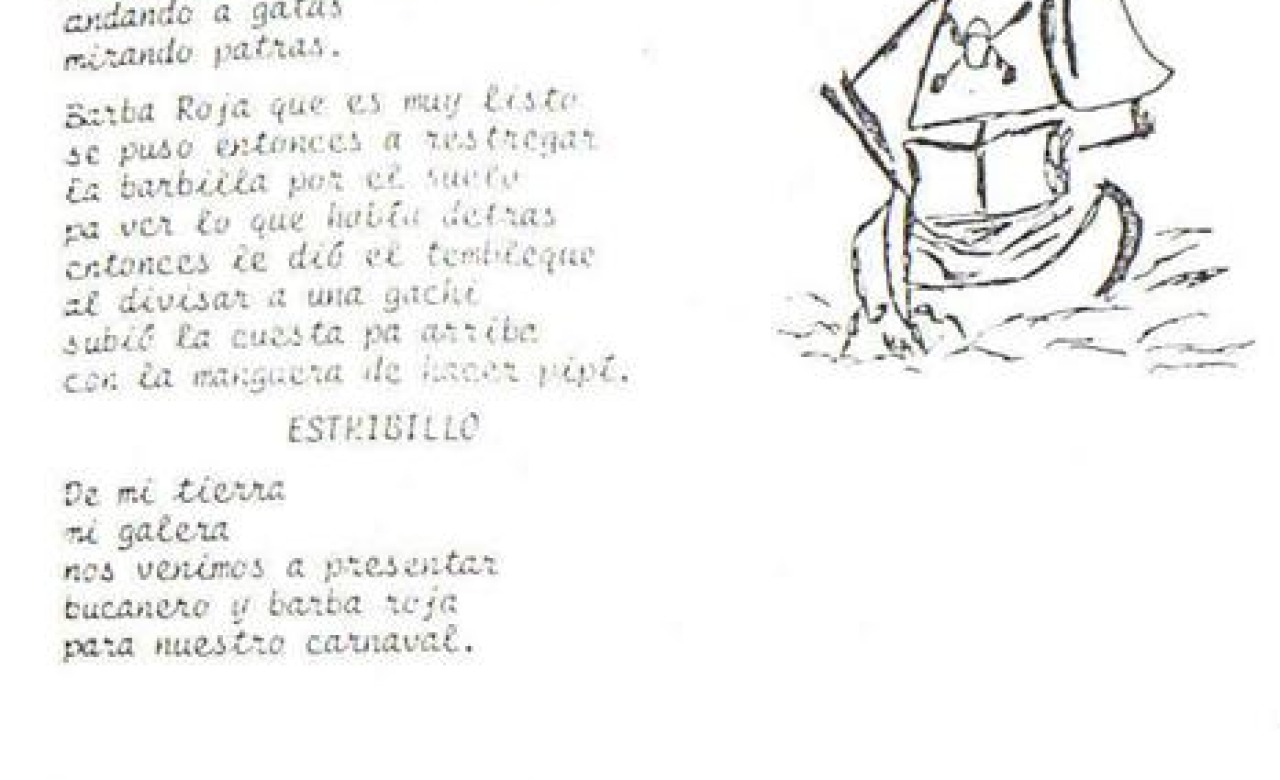 andando a gatas
mirando patras.
Barba Roja que es muy listo
se puso entonces a restregar
la barbilla por el suelo
pa ver lo que había detras
entonces le dió el tembleque
al divisar a una gachí
subió la cuesta pa arriba
con la manguera de hacer pipí.
ESTRIBILLO
De mi tierra
mi galera
nos venimos a presentar
bucanero y barba roja
para nuestro carnaval.